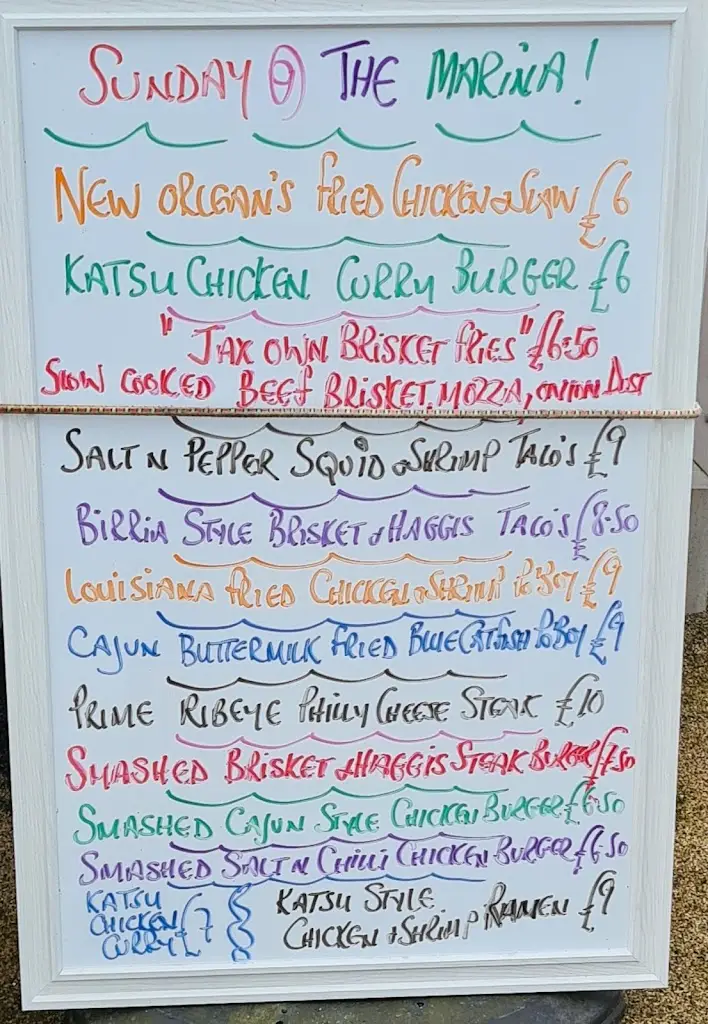 SUNDAY @ THE MARINA!
NEW ORLEAN'S FRIED CHICKEN & SLAW £6
KATSU CHICKEN CURRY BURGER £6
"JAX OWN BRISKET FRIES" £6.50
SLOW COOKED BEEF BRISKET, MOZZA, ONION DUST
SALT N PEPPER SQUID & SHRIMP TACO'S £9
BIRRIA STYLE BRISKET & HAGGIS TACO'S £8.50
LOUISIANA FRIED CHICKEN & SHRIMP PO'BOY £9
CAJUN BUTTERMILK FRIED BLUE CATFISH PO'BOY £9
PRIME RIBEYE PHILLY CHEESE STEAK £10
SMASHED BRISKET & HAGGIS STEAK BURGER £7.50
SMASHED CAJUN STYLE CHICKEN BURGER £6.50
SMASHED SALT N CHILLI CHICKEN BURGER £6.50
KATSU
CHICKEN
CURRY £7
KATSU STYLE
CHICKEN & SHRIMP RAMEN £9